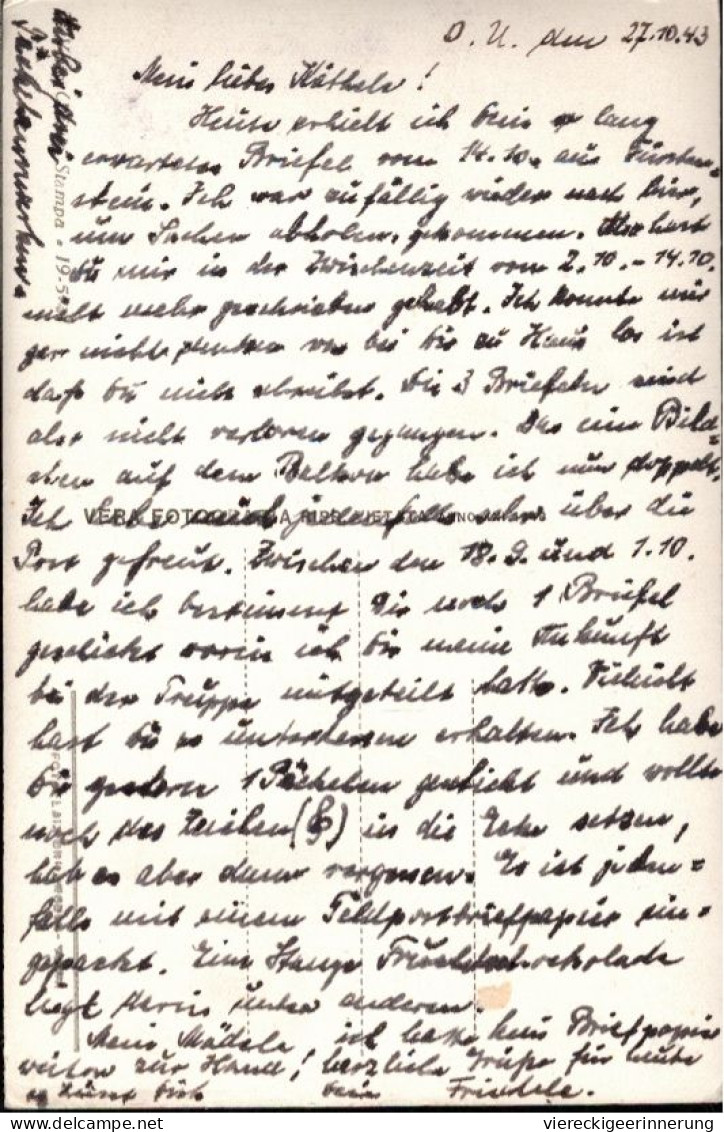 O. U. den 27.10.43
Mein liebes Käthele!
Heute erhielt ich Dein lang
erwartetes Briefel vom 14.10. aus Fürsten-
stein. Ich war zufällig wieder nach hier,
um Sachen abholen, gekommen. Also hast
Du mir in der Zwischenzeit vom 2.10. - 14.10.
nicht mehr geschrieben gehabt. Ich konnte mir
gar nicht denken was bei Dir zu Haus los ist
daß Du nicht schreibst. Die 3 Briefeln sind
also nicht verloren gegangen. Das eine Bild-
chen auf dem Balkon habe ich nun doppelt.
Ich habe mich jedenfalls sehr über die
Post gefreut. Zwischen den 18.9. und 1.10.
habe ich bestimmt Dir noch 1 Briefel
geschickt worin ich Dir meine Ankunft
bei der Truppe mitgeteilt hatte. Vielleicht
hast Du es unterdessen erhalten. Ich habe
Dir gestern 1 Päckchen geschickt und wollte
noch das Zeichen ( ) in die Ecke setzen,
hab es aber dann vergessen. Es ist jeden-
falls mit einem Feldpostbriefpapier ein-
gepackt. Eine Stange Fruchtschokolade
liegt darin unter anderem.
Mein Mädele, ich hatte kein Briefpapier
weiter zur Hand! herzliche Grüße für heute
es küßt Dich Dein Friedele.
Päckchenmarken.
Stampa - 19-5
VERA FOTOGRAFIA
viereckigeerinnerung